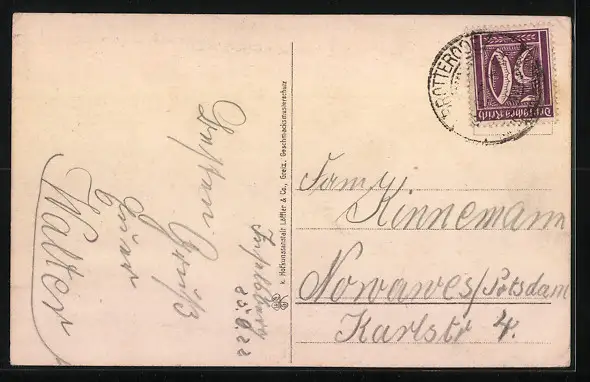 BROTTERODE
Deutsches Reich
k. Hofkunstanstalt Löffler & Co., Greiz. Geschmacksmusterschutz
Inselsberg
25.8.22
Gruß
Euer
Walter
Fam.
Kinnemann
Nowawes/Potsdam
Karlstr 4.